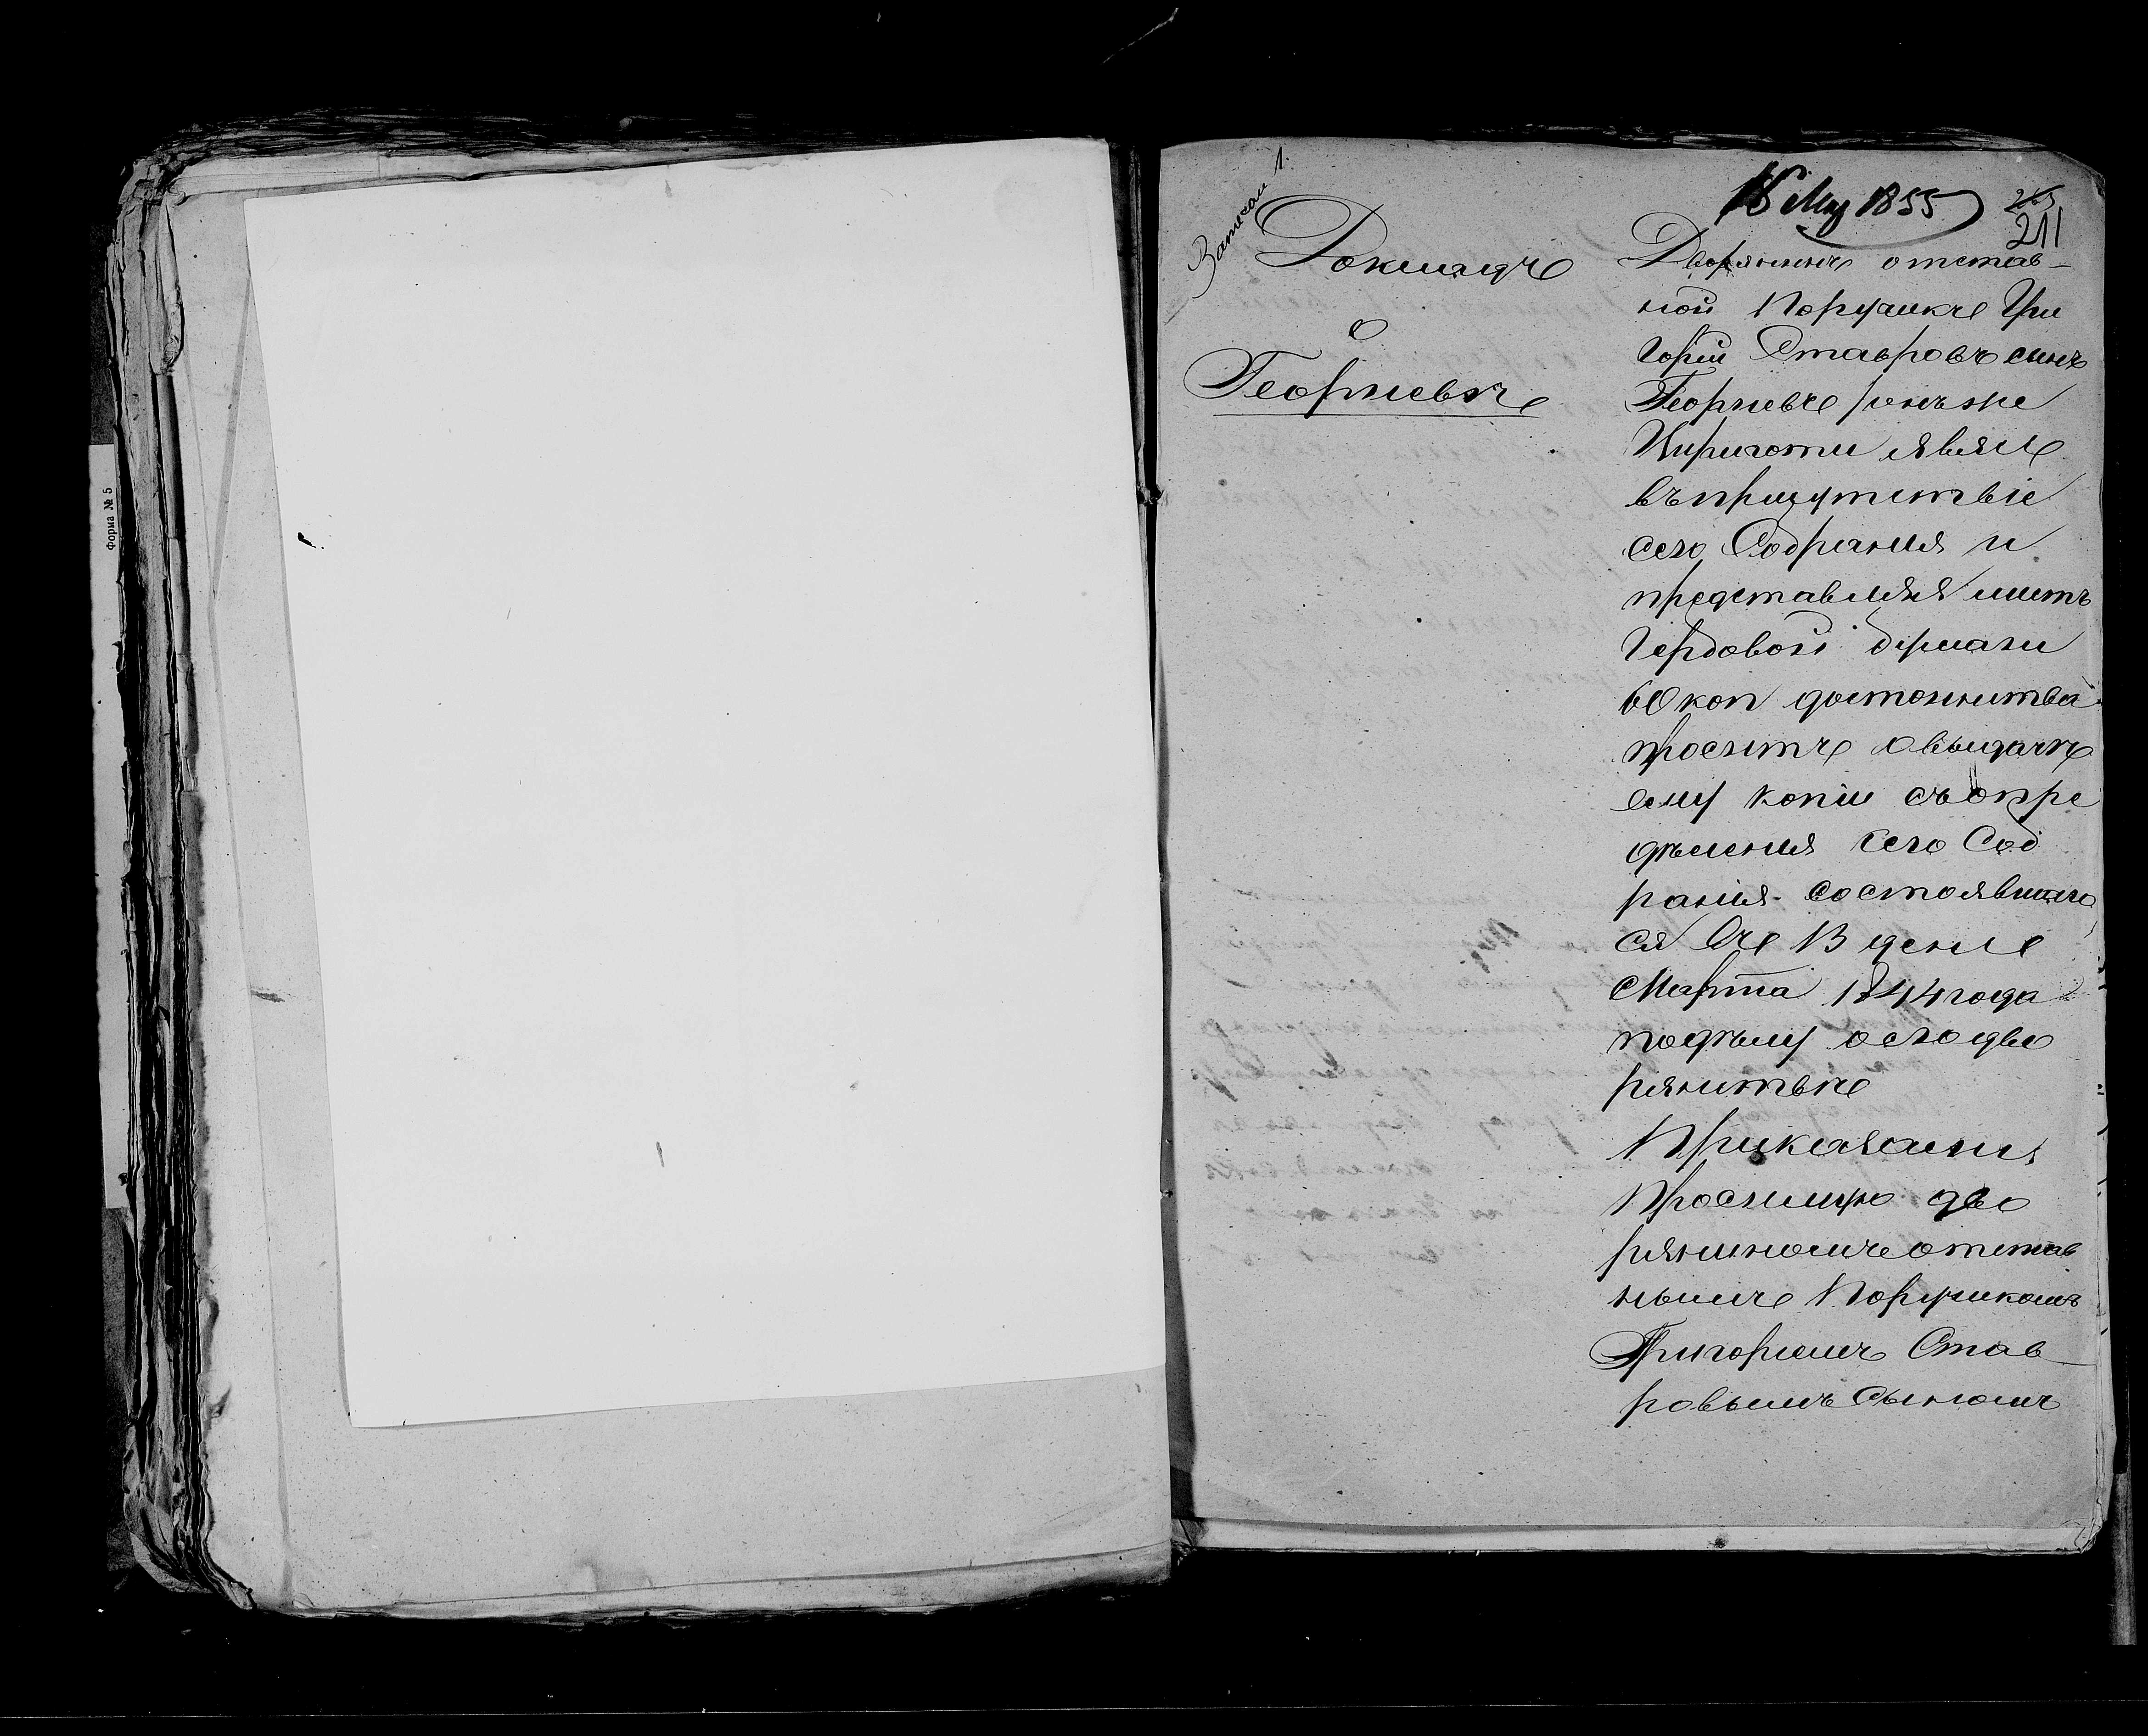 Форма № 5
1.
18 Мая 1855
265
211
Докладъ
о
Георгіевѣ
Дворянинъ отстав-
ной Порутчикъ Гри
горій Ставровъ сынъ
Георгіевъ онъ же
Кириготи явясь
въ присутствіе
сего Собранія и
представляя листъ
гербовой бумаги
60 коп достоинства
проситъ о выдачѣ
ему копіи съ опре
дѣленія сего Соб
ранія состоявшаго
ся въ 13 день
Марта 1844 года
по дѣлу о его дво
рянствѣ
Приказали
Просимую дво
ряниномъ отстав
нымъ Порутчикомъ
Григоріемъ Став
ровымъ сыномъ